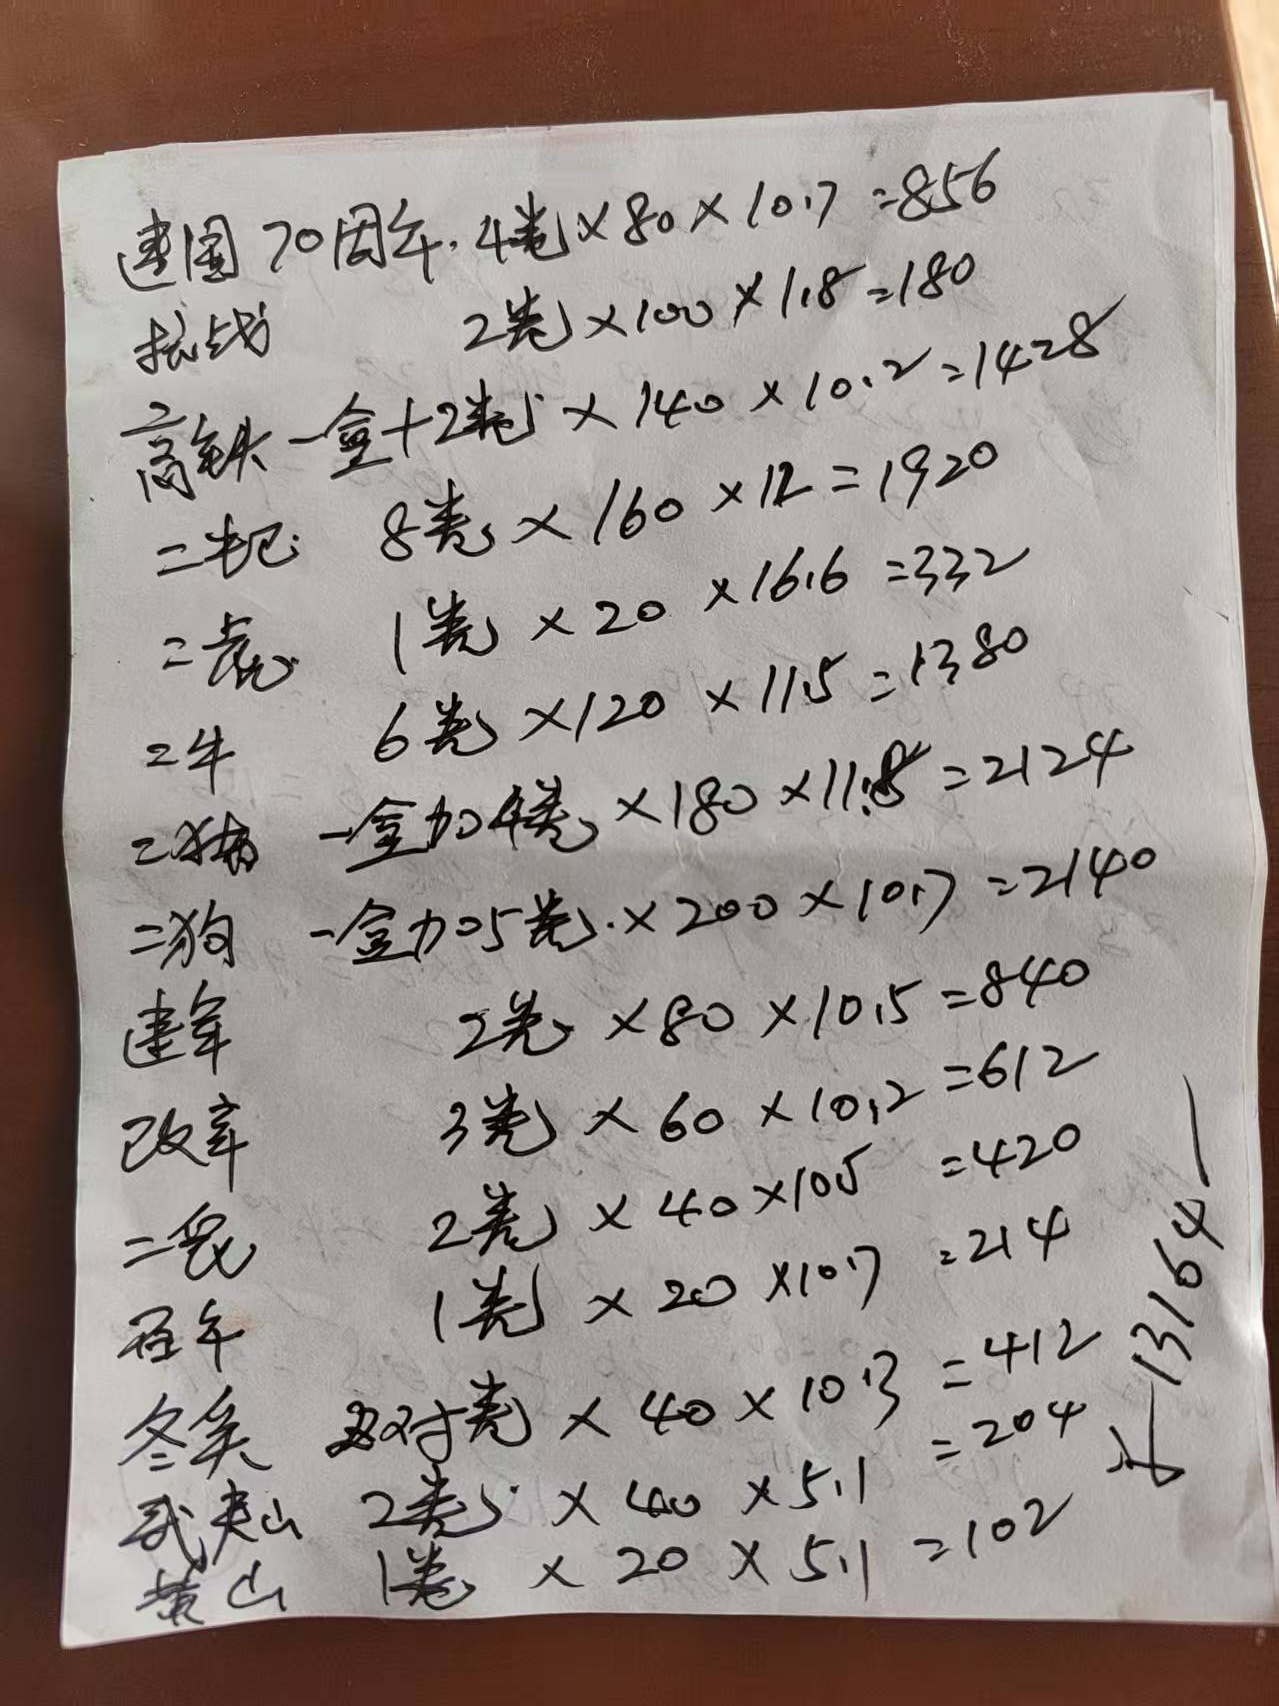 建国70周年.4卷×80×10.7=856
抗战 2卷×100×1.8=180
高铁 一盒+2卷×140×10.2=1428
二鼠 8卷×160×12=1920
二虎 1卷×20×16.6=332
二牛 6卷×120×11.5=1380
二猪 一盒加4卷×180×11.8=2124
二狗 一盒加5卷.×200×10.7=2140
建军 2卷×80×10.5=840
改革 3卷×60×10.2=612
二兔 2卷×40×10.5=420
百年 1卷×20×10.7=214
冬奥 对卷×40×10.3=412
武夷山 2卷×40×5.1=204
黄山 1卷×20×5.1=102
13164